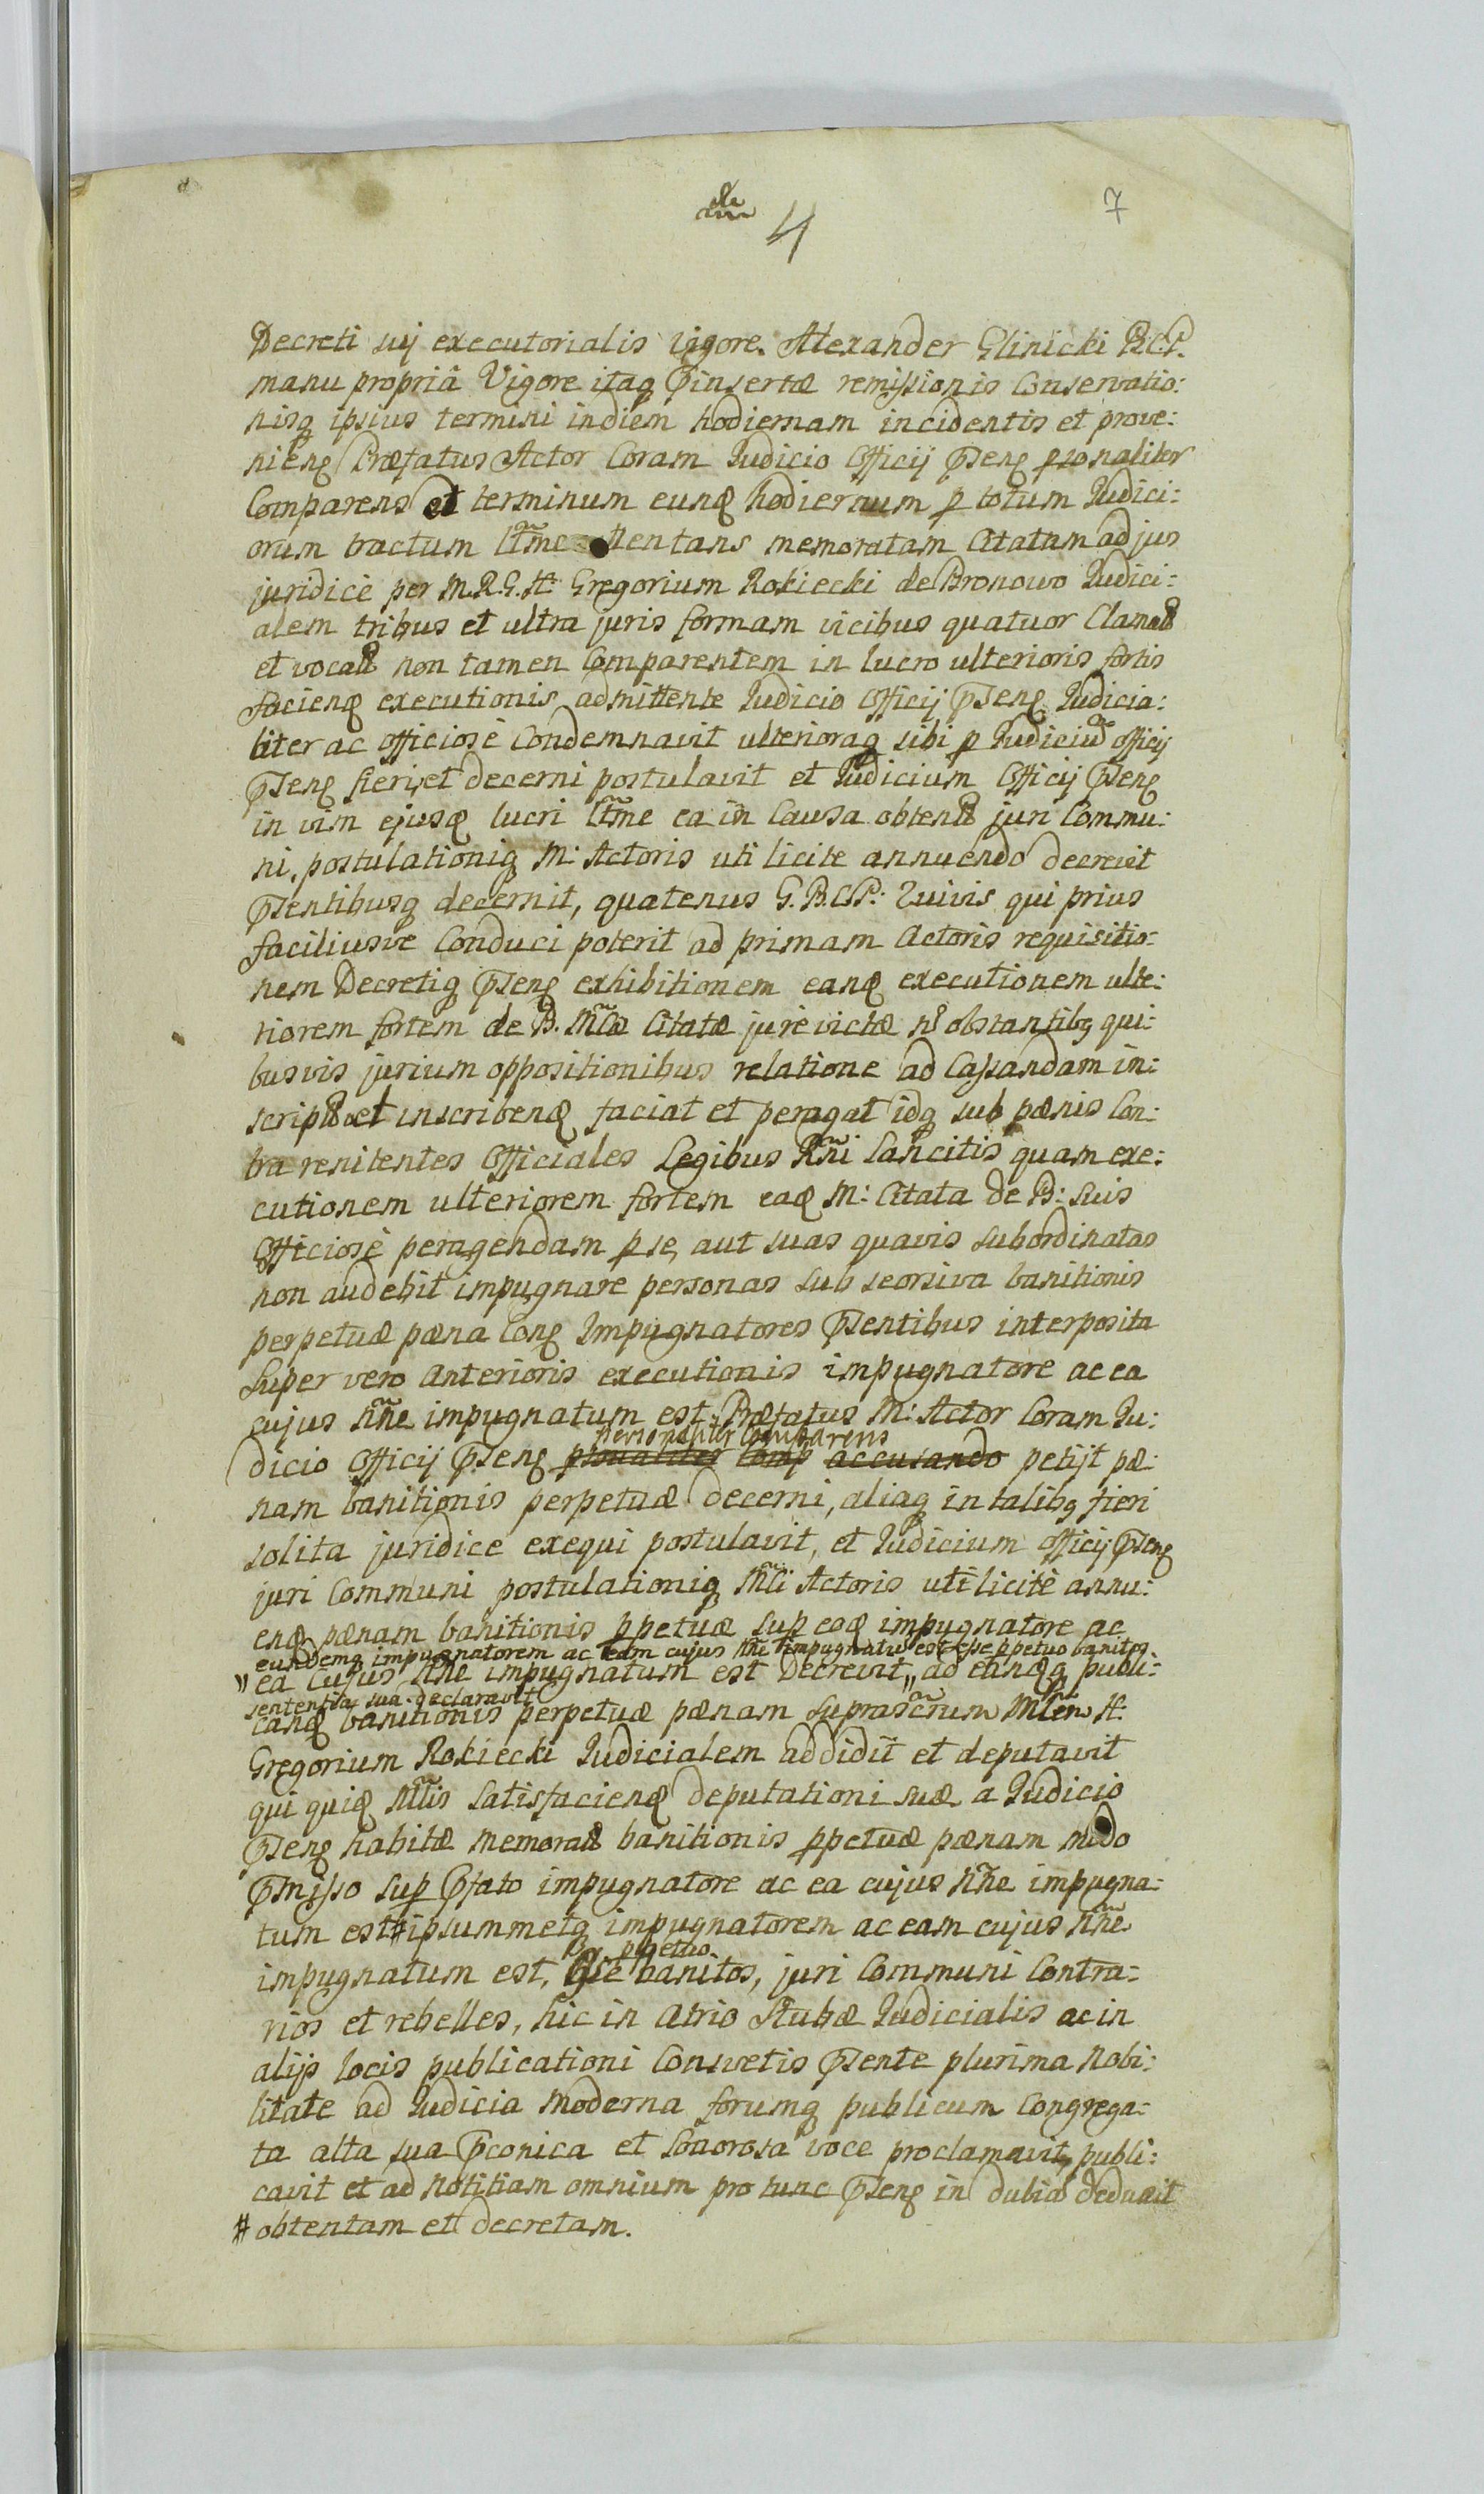 4
7
Decreti sui executorialis vigore. Alexander Glinicki R.C.P.
manu propriâ Vigore itaq p̄insertæ remissionis Conservatio:
nisq ipsius termini in diem hodiernam incidentis et prove:
nienę Præfatus Actor Coram Judicio Officij p̄senę psonaliter
Comparens et terminum eundę hodiernum p totum Judici:
orum tractum lt̃me attentans memoratam Citatam ad jus
juridicè per M.R.G.H: Gregorium Rokiecki de Bronowo Judici:
alem tribus et ultra juris formam vicibus quatuor Clamat
et vocat non tamen Comparentem in lucro ulterioris fortis
facienę executionis admittente Judicio Officij p̄senę Judicia:
liter ac officiosè Condemnavit ulterioraq sibi p Judiciū officij
p̄senę fieri, et decerni postulavit et Judicium Officij p̄senę
in vim ejusdę lucri lt̃me ea in Causa obtent juri Commu:
ni, postulationiq M: Actoris uti licite annuendo decrevit
p̄sentibusq decernit, quatenus G.R.C.P: quivis qui prius
faciliusve Conduci poterit ad primam Actoris requisitio:
nem Decretiq p̄senę exhibitionem eandę executionem ulte:
riorem fortem de B. Mc̃æ Citatæ jurevictæ no obstantibq qui:
busvis jurium oppositionibus relatione ad Cassandam in:
script et inscribendę faciat et peragat idq sub pænis Con:
tra renitentes Officiales Legibus Rñi Sancitis quam exe:
cutionem ulteriorem fortem eadę M: Citata de B: suis
Officiosè peragendam p se, aut suas quavis subordinatas
non audebit impugnare personas sub seorsiva banitionis
perpetuæ pæna Conę Impugnatores p̄sentibus interposita
Super vero anterioris executionis impugnatore ac ea
cujus nñe impugnatum est. Præfatus M: Actor Coram Ju:
personaliter Comparens
dicio Officij p̄senę psonaliter Comp accusando petijt pæ:
nam banitionis perpetuæ decerni, aliaq in talibq fieri
solita juridice exequi postulavit, et Judicium officij p̄senę
juri Communi postulationiq Mc̃i Actoris uti licitè annu:
endę pænam banitionis ppetuæ sup eodę impugnatore ac
eundemq impugnatorem ac eam cujus nñe impugnatū est esse ppetuo banitos
" ea cujus nñe impugnatum est Decrevit " ad eandęq publi:
sententia sua declaravit
candę banitionis perpetuæ pænam suprascr̃um Mc̃em H:
Gregorium Rokiecki Judicialem addidit et deputavit
qui quidę Mc̃lis satisfacienę deputationi suæ a Judicio
p̄senę habitæ memorat banitionis ppetuæ pænam modo
p̄misso sup p̄fato impugnatore ac ea cujus nñe impugna:
tum est # ipsummetq impugnatorem ac eam cujus nñe
ppetuo
impugnatum est, esse banitos, juri Communi Contra:
rios et rebelles, hic in Atrio Stubæ Judicialis ac in
alijs locis publicationi Consvetis p̄sente plurima Nobi:
litate ad Judicia moderna forumq publicum Congrega:
ta alta sua p̄conica et Sonorosa voce proclamavit, publi:
cavit et ad Notitiam omnium pro tunc p̄senę indubiā deduxit
# obtentam et decretam.